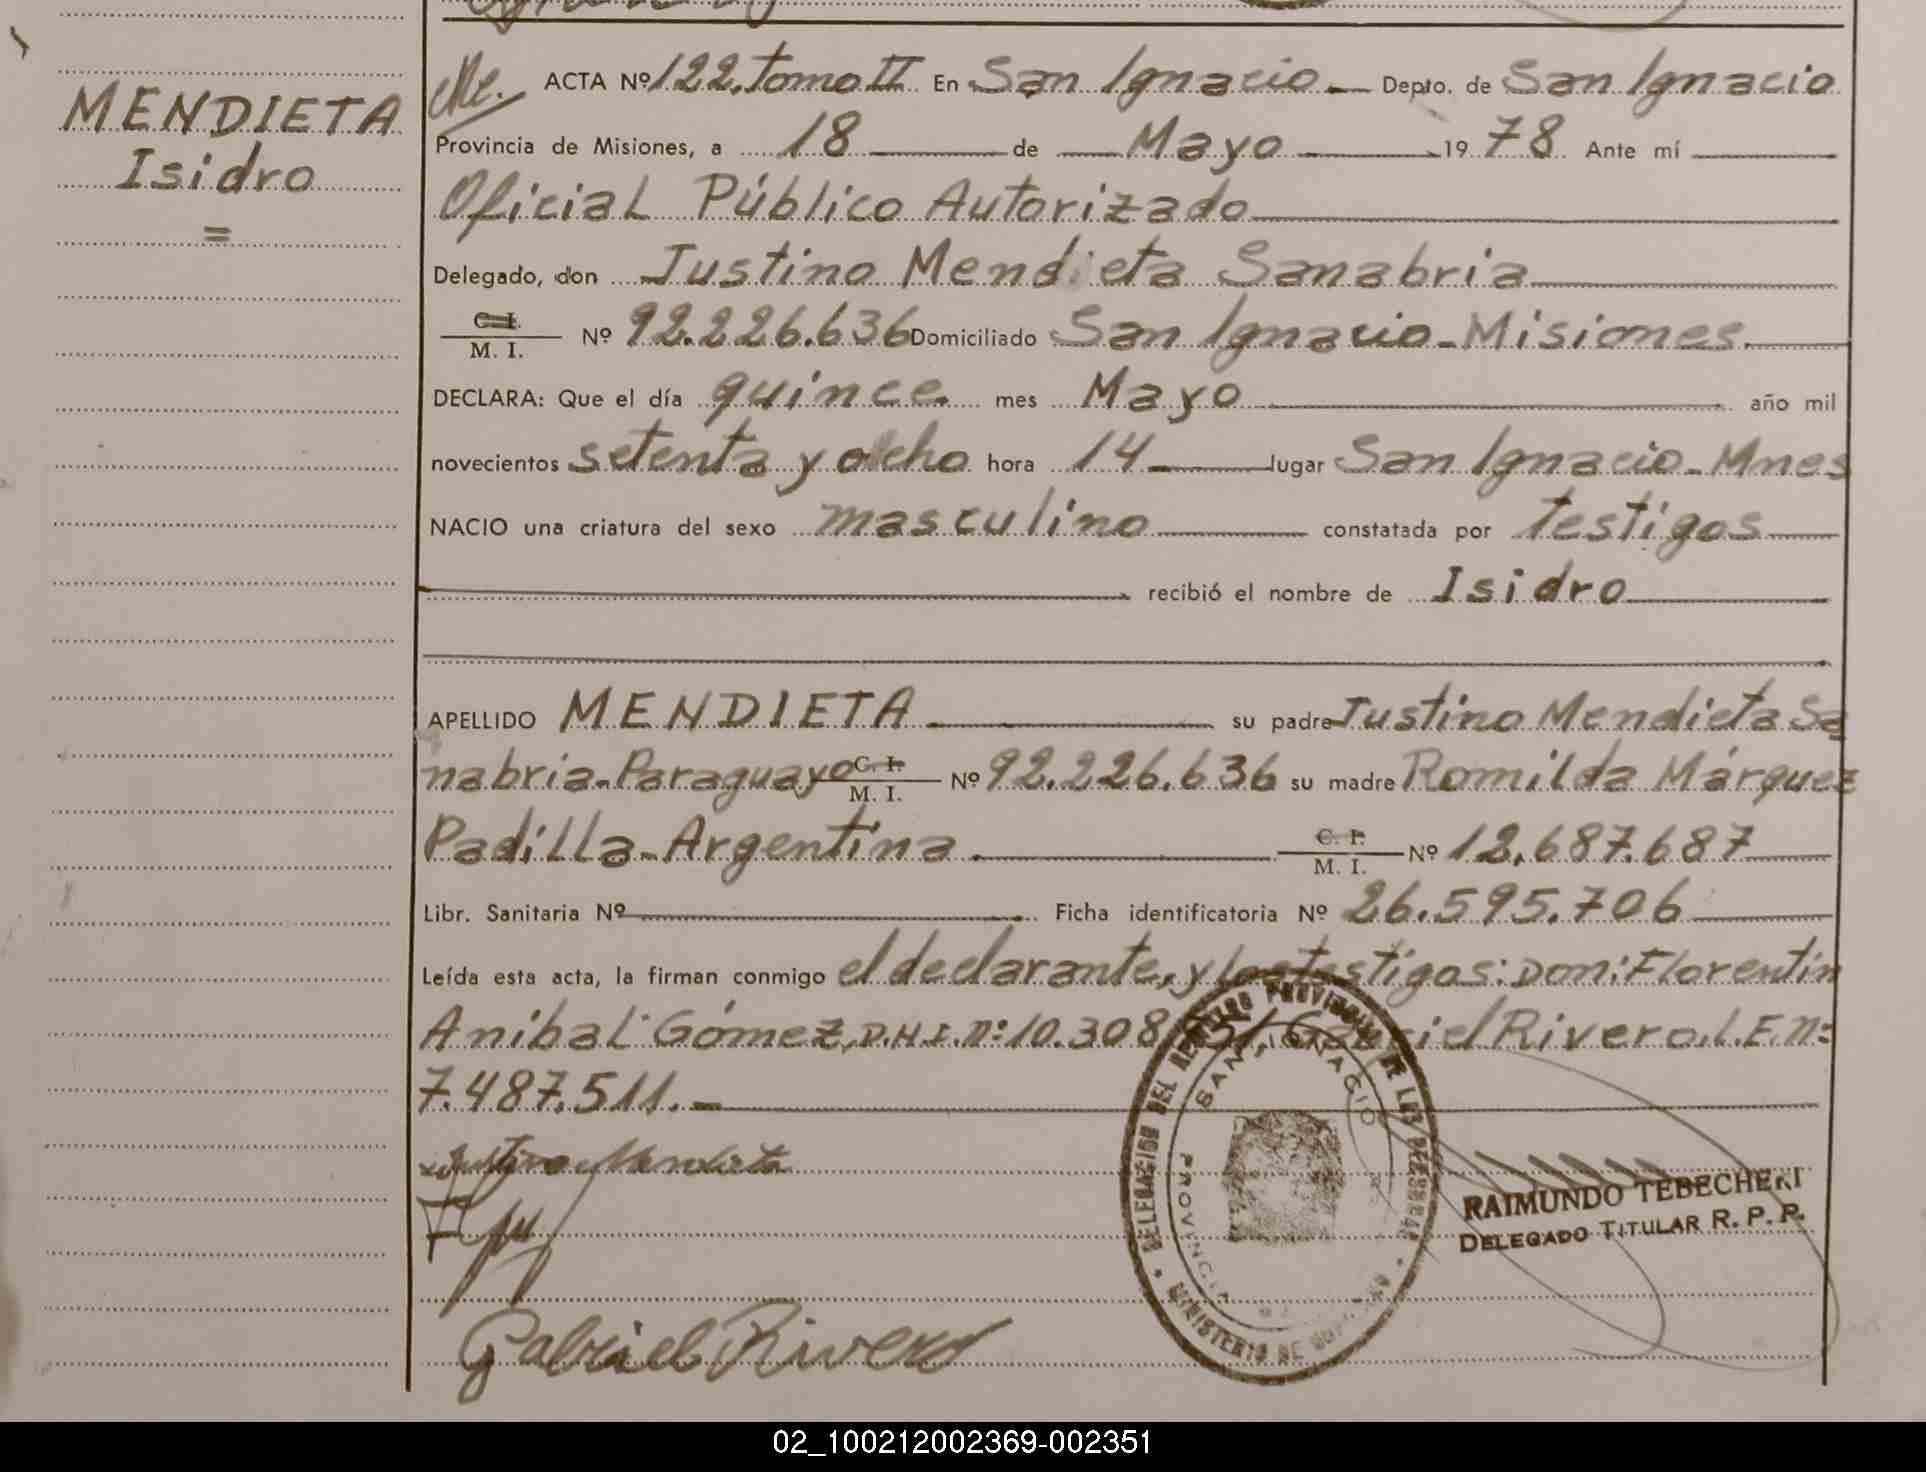 MENDIETA
Isidro
=
ACTA Nº 122. tomo II En San Ignacio Depto. de San Ignacio
Provincia de Misiones, a 18 de Mayo 19 78 Ante mí
Oficial Público Autorizado
Delegado, don Justino Mendieta Sanabria
C. I.
M. I. Nº 92.226.636 Domiciliado San Ignacio-Misiones.
DECLARA: Que el día quince mes Mayo año mil
novecientos setenta y ocho hora 14 lugar San Ignacio-Mnes
NACIO una criatura del sexo masculino constatada por testigos
recibió el nombre de Isidro
APELLIDO MENDIETA su padre Justino Mendieta Sa
nabria-Paraguayo C. I. M. I. Nº 92.226.636 su madre Romilda Márquez
Padilla-Argentina C. I. M. I. Nº 12.687.687
Libr. Sanitaria Nº Ficha identificatoria Nº 26.595.706
Leída esta acta, la firman conmigo el declarante, y los testigos: Don: Florentín
Aníbal Gómez, D.N.I. n: 10.308 Gabriel Rivero. L.E. n:
7.487.511.-
Justino Mendieta
Gabriel Rivero
DELEGACION DEL REGISTRO PROVINCIAL DE LAS PERSONAS
SAN IGNACIO
PROVINCIA
MINISTERIO DE
RAIMUNDO TEBECHERI
DELEGADO TITULAR R. P. P.
02_100212002369-002351